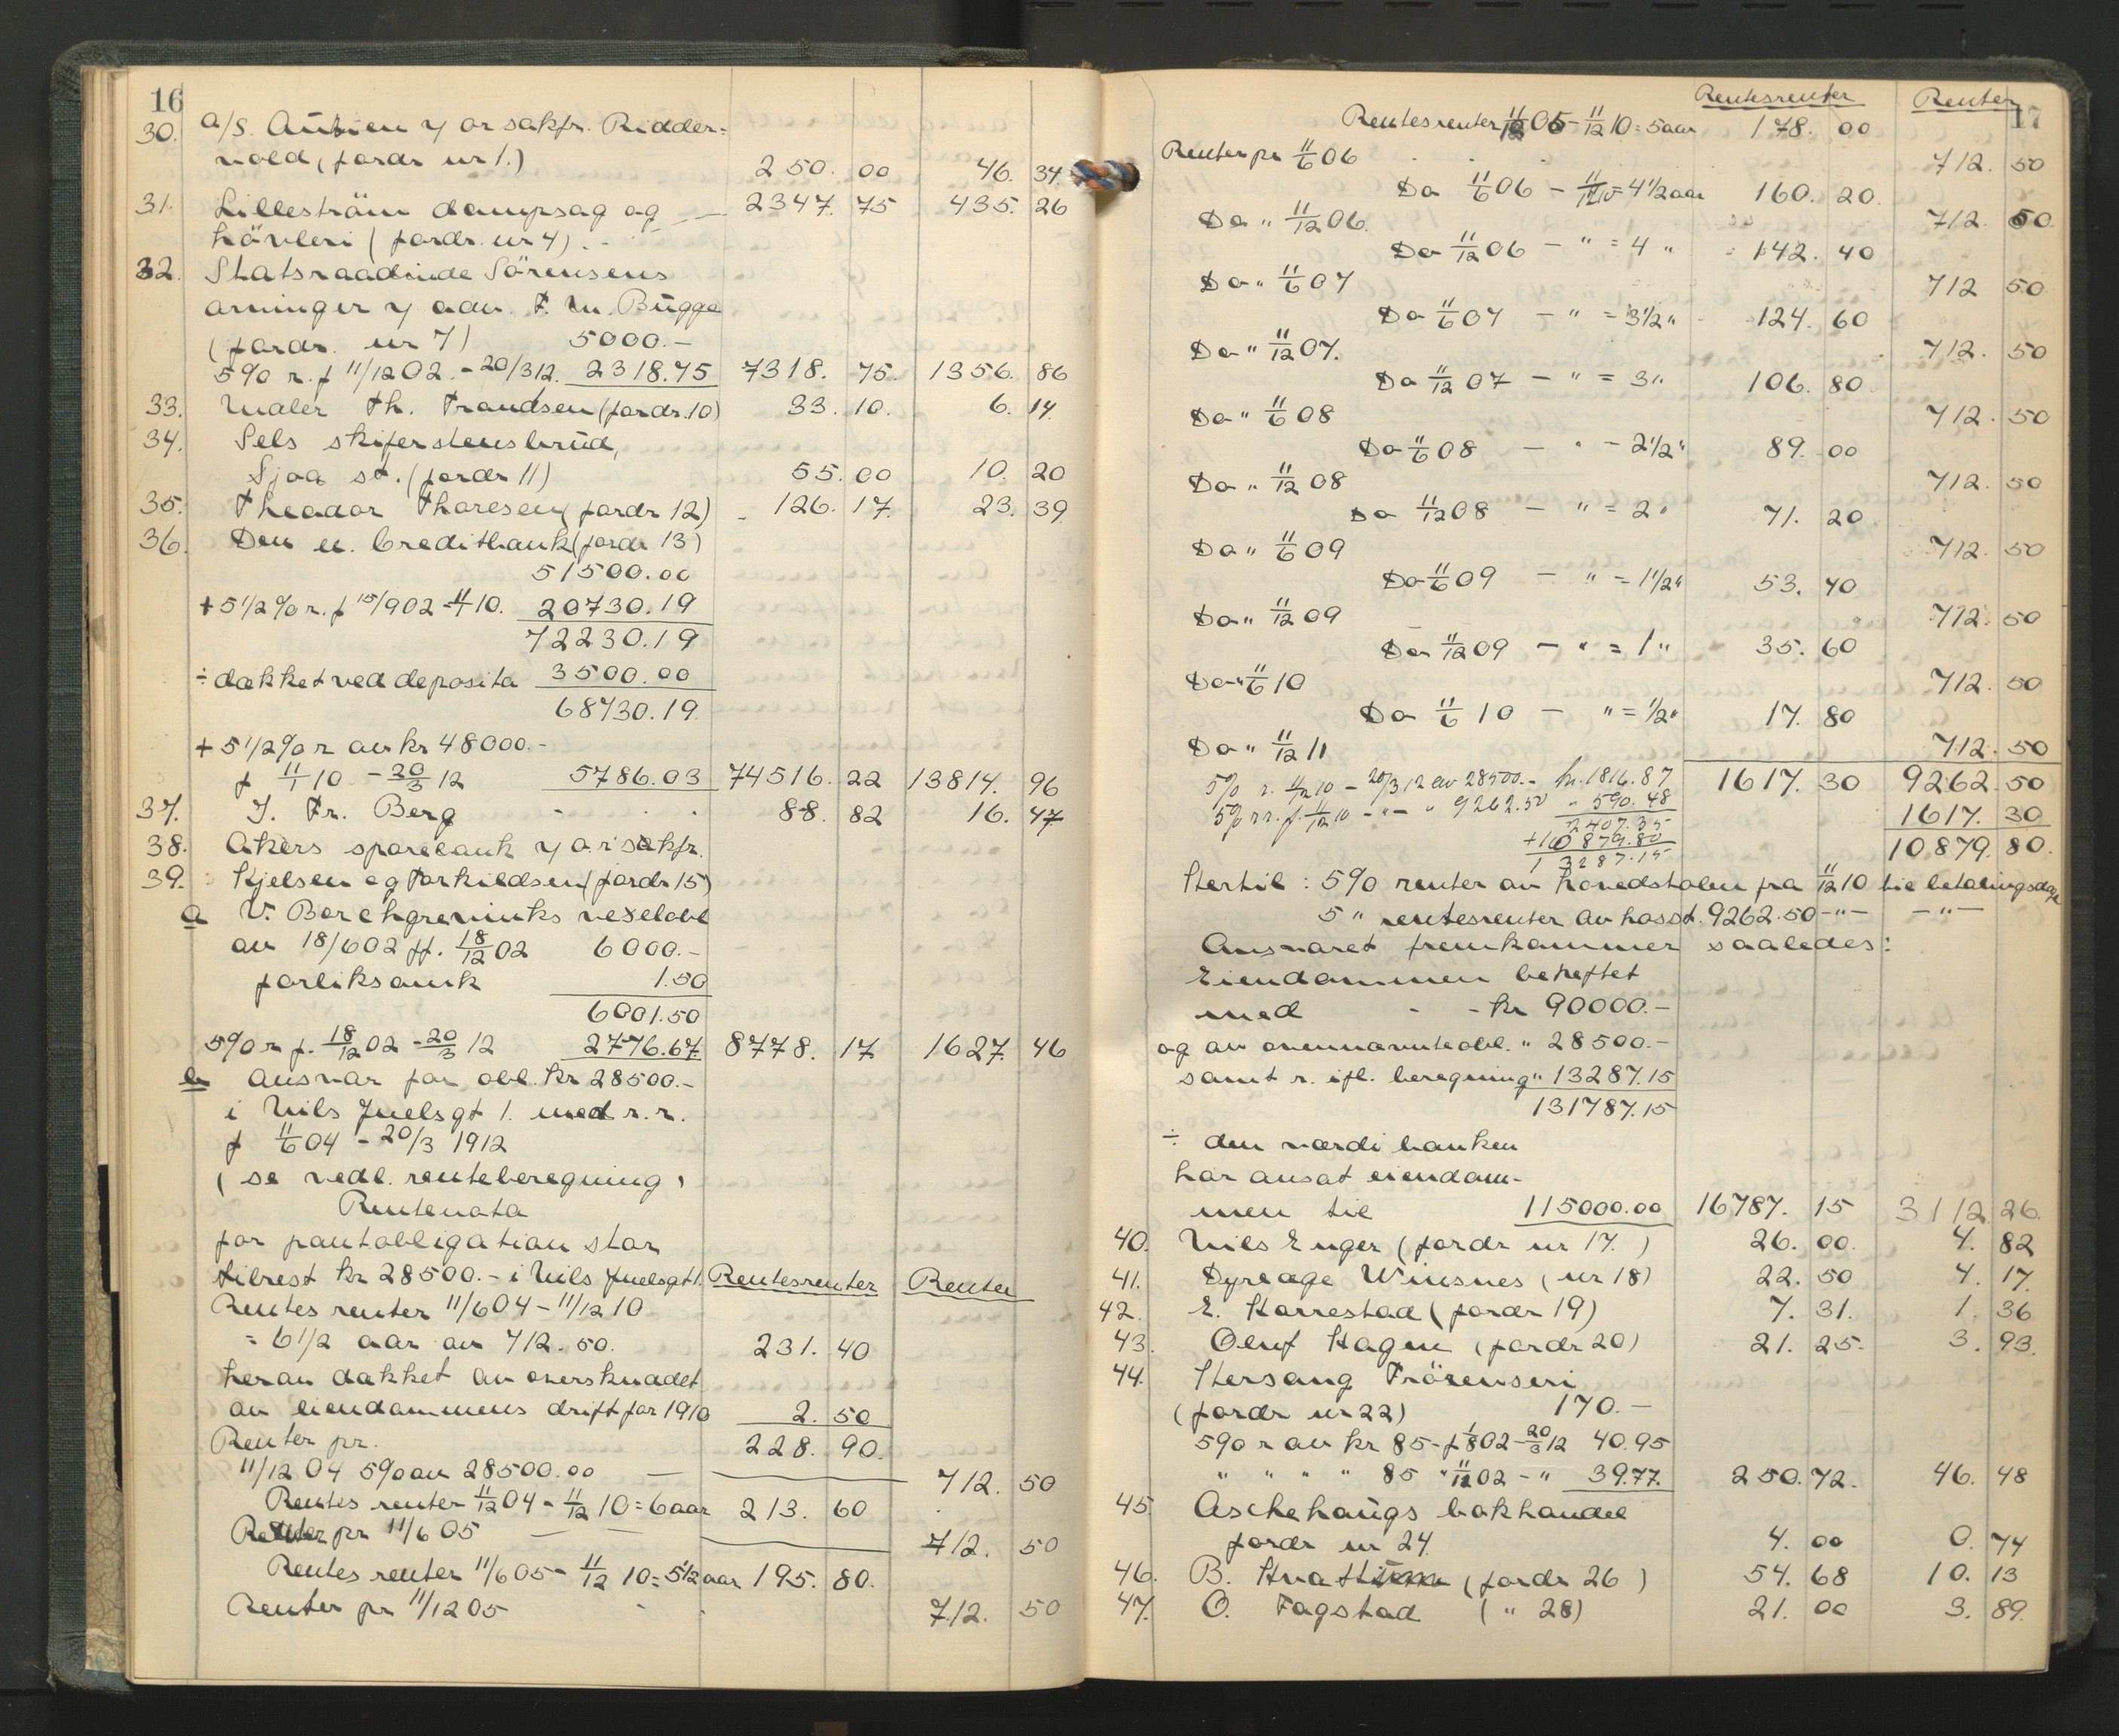 16
30. a/s. Autsien v/ or sakfr. Ridder-
vold (fordr nr 1.) 250. 00 46. 34
31. Lilleström dampsag og 2347. 75 435. 26
hövleri (fordr. nr 4)
32. Statsraadinde Sörensens
arvinger v/ adv. F. M. Bügge
(fordr. nr 7) 5000.-
5% r. f 11/12 02. - 20/3 12. 2318.75 7318. 75. 1356. 86
33. Maler Th. Frandsen (fordr. 10) 33. 10. 6. 14
34. Sels skiferstensbrud,
Sjoa st. (fordr 11) 55. 00 10. 20
35. Theodor Thoresen (fordr 12) 126. 17. 23. 39
36. Den n. Creditbank (fordr 13)
51500.00
+ 5 1/2 % r. f 15/9 02 - 11/1 10. 20730.19
72230.19
÷ dækket ved deposita 3500.00
68730.19.
+ 5 1/2 % r av kr 48000.-
f 11/1 10 - 20/3 12 5786.03 74516. 22 13814. 96
37. J. Fr. Berg 88. 82 16. 47
38. Akers sparebank v/ o.r sakfr.
39. Kjelsen og Torkildsen (fordr 15)
a V. Borchgrevinks vexelobl
av 18/6 02 pf. 18/12 02 6000.-
forliksomk 1.50
6001.50
5% r f. 18/12 02 - 20/3 12 2776.67 8778. 17 1627. 46
b Ansvar for obl. kr 28500.-
i Nils Juelsgt 1. med r. r.
f 11/6 04 - 20/3 1912
(se vedl. renteberegning)
Rentenota
for pantobligation stor
tilrest kr 28500.- i Nils Juelsgt 1. Rentesrenter Renter
Rentes renter 11/6 04 - 11/12 10
= 6 1/2 aar av 712. 50. 231. 40
herav dækket av overskuddet
av eiendommens drift for 1910 2. 50
Renter pr. 228. 90.
11/12 04 5% av 28500.00 — 712. 50
Rentes renter 11/12 04 - 11/12 10 = 6 aar 213. 60
Renter pr 11/6 05 — — 712. 50
Rentes renter 11/6 05 - 11/12 10 = 5 1/2 aar 195. 80.
Renter pr 11/12 05 712. 50
17
Rentesrenter Renter
Rentesrenter 11/12 05 - 11/12 10 = 5 aar 178. 00
Renter pr 11/6 06 712. 50
Do 11/6 06 - 11/12 10 = 4 1/2 aar 160. 20.
Do " 11/12 06. 712. 50.
Do 11/12 06 - " = 4 " 142. 40
Do " 11/6 07 712 50.
Do 11/6 07 - " = 3 1/2 " 124. 60
Do " 11/12 07. 712. 50
Do 11/12 07 - " = 3 " 106. 80
Do " 11/6 08 712. 50
Do 11/6 08 - " - 2 1/2 " 89. 00
Do " 11/12 08 712. 50
Do 11/12 08 - " = 2 " 71. 20
Do " 11/6 09 712. 50
Do 11/6 09 - " = 1 1/2 " 53. 40
Do " 11/12 09 712. 50
Do 11/12 09 - " = 1 " 35. 60
Do " 11/6 10 712. 50
Do 11/6 10 - " = 1/2 " 17. 80
Do " 11/12 11 712. 50
5% r. 11/12 10 - 20/3 12 av 28500.- kr. 1816.87 1617. 30 9262. 50
5% rr. f. 11/12 10 - " - " 9262.50 " 590.48 1617. 30
2407.35
+ 10879.80 10879. 80.
13287.15
Hertil : 5% renter av hovedstolen fra 11/12 10 til betalingsdag
5 " rentesrenter av hosst. 9262.50 - " - - " -
Ansvaret fremkommer saaledes:
Eiendommen beheftet
med - - kr 90000.-
og av ovennævnte obl. " 28500.-
samt r. ifl. beregning " 13287.15
131787.15
÷ den værdi banken
har ansat eiendom-
men til 115000.00 16787. 15 3112 26.
40. Nils Enger (fordr nr 17.) 26. 00. 4. 82
41. Dyrlæge Winsnes (nr 18) 22. 50 4. 17.
42. E. Horrestad (fordr 19) 7. 31. 1. 36
43. Oluf Hagen (fordr 20) 21. 25. 3. 93.
44. Hersang Frörenseri
(fordr nr 22) 170.-
5% r av kr 85 - f 1/8 02 - 20/3 12 40.95
" " " " 85 " 11/12 02 - " 39.77. 250. 72. 46. 48
45. Aschehaugs bokhandel
fordr nr 24. 4. 00 0. 74
46. B. (fordr 26) 54. 68 10. 13
47. O. Fagstad ( " 28) 21. 00 3. 89.